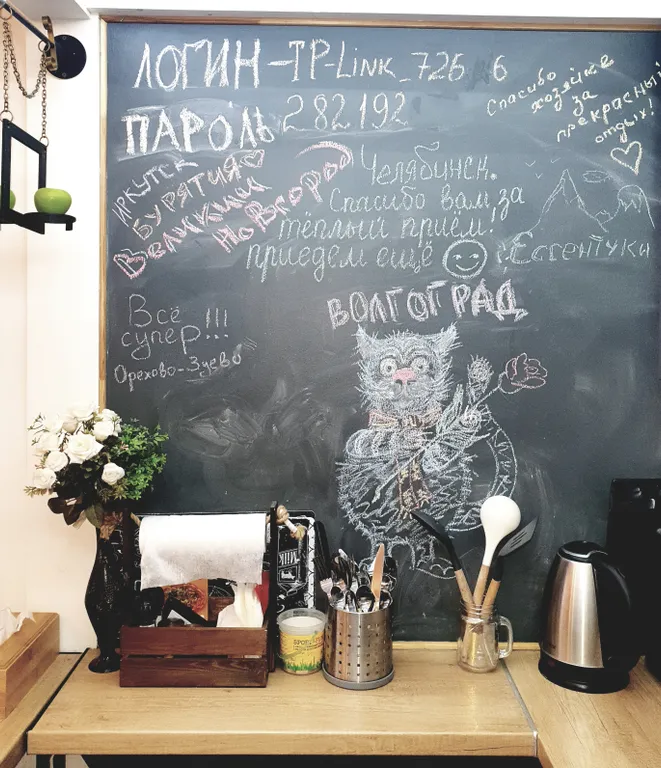 ЛОГИН-TP-Link_726 6
ПАРОЛЬ 282192
Спасибо
хозяйке
за
прекрасный
отдых!
ИРКУТСК
БУРЯТИЯ
Великий
Новгород
Челябинск.
Спасибо вам, за
тёплый приём!
приедем ещё
Ессентуки
ВОЛГОГРАД
Всё
супер!!!
Орехово-Зуево
MILK